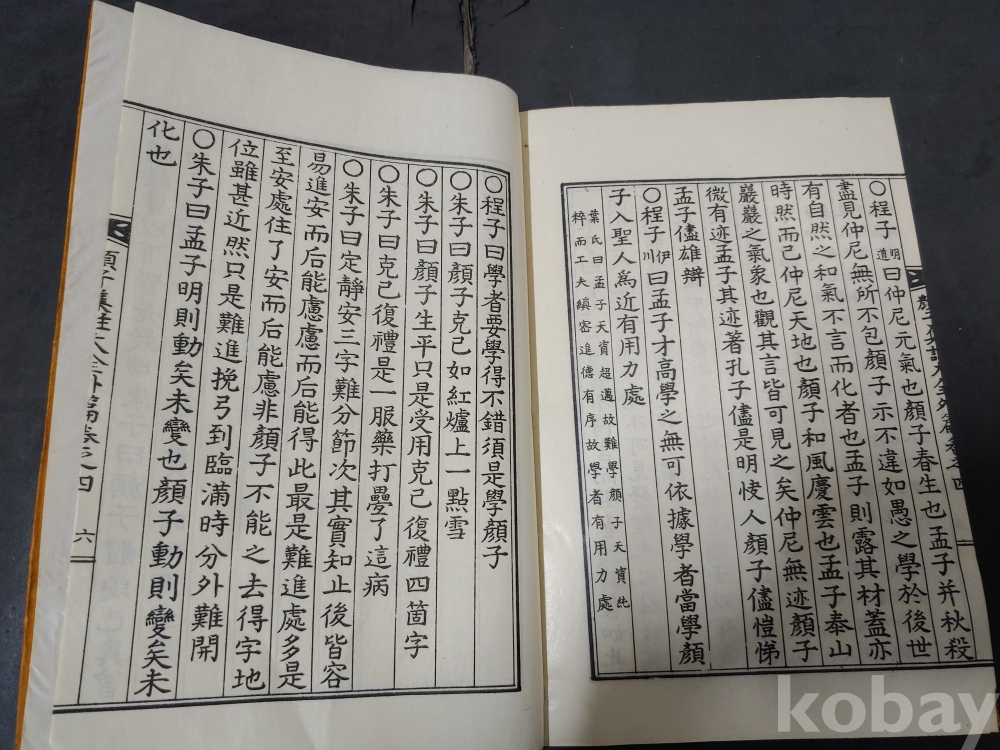 ○程子明道曰仲尼元氣也顔子春生也孟子并秋殺
盡見仲尼無所不包顔子示不違如愚之學於後世
有自然之和氣不言而化者也孟子則露其材蓋亦
時然而已仲尼天地也顔子和風慶雲也孟子泰山
巖巖之氣象也觀其言皆可見之矣仲尼無迹顔子
微有迹孟子其迹著孔子儘是明快人顔子儘愷悌
孟子儘雄辯
○程子伊川曰孟子才高學之無可依據學者當學顔
子入聖人爲近有用力處
葉氏曰孟子天資超邁故難學顔子天資純
粹而工夫縝密進德有序故學者有用力處
○程子曰學者要學得不錯須是學顔子
○朱子曰顔子克己如紅爐上一點雪
○朱子曰顔子生平只是受用克己復禮四箇字
○朱子曰克己復禮是一服藥打疊了這病
○朱子曰定靜安三字難分節次其實知止後皆容
易進安而后能慮慮而后能得此最是難進處多是
至安處住了安而后能慮非顔子不能之去得字地
位雖甚近然只是難進挽弓到臨滿時分外難開
○朱子曰孟子明則動矣未變也顔子動則變矣未
化也
顔子集註大全外篇卷之四
六
kobay